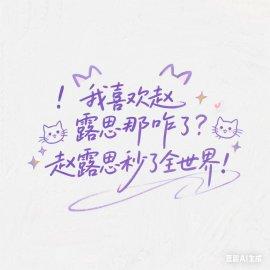 ！我喜欢赵
露思那咋了？
赵露思秒了全世界！
豆包AI生成